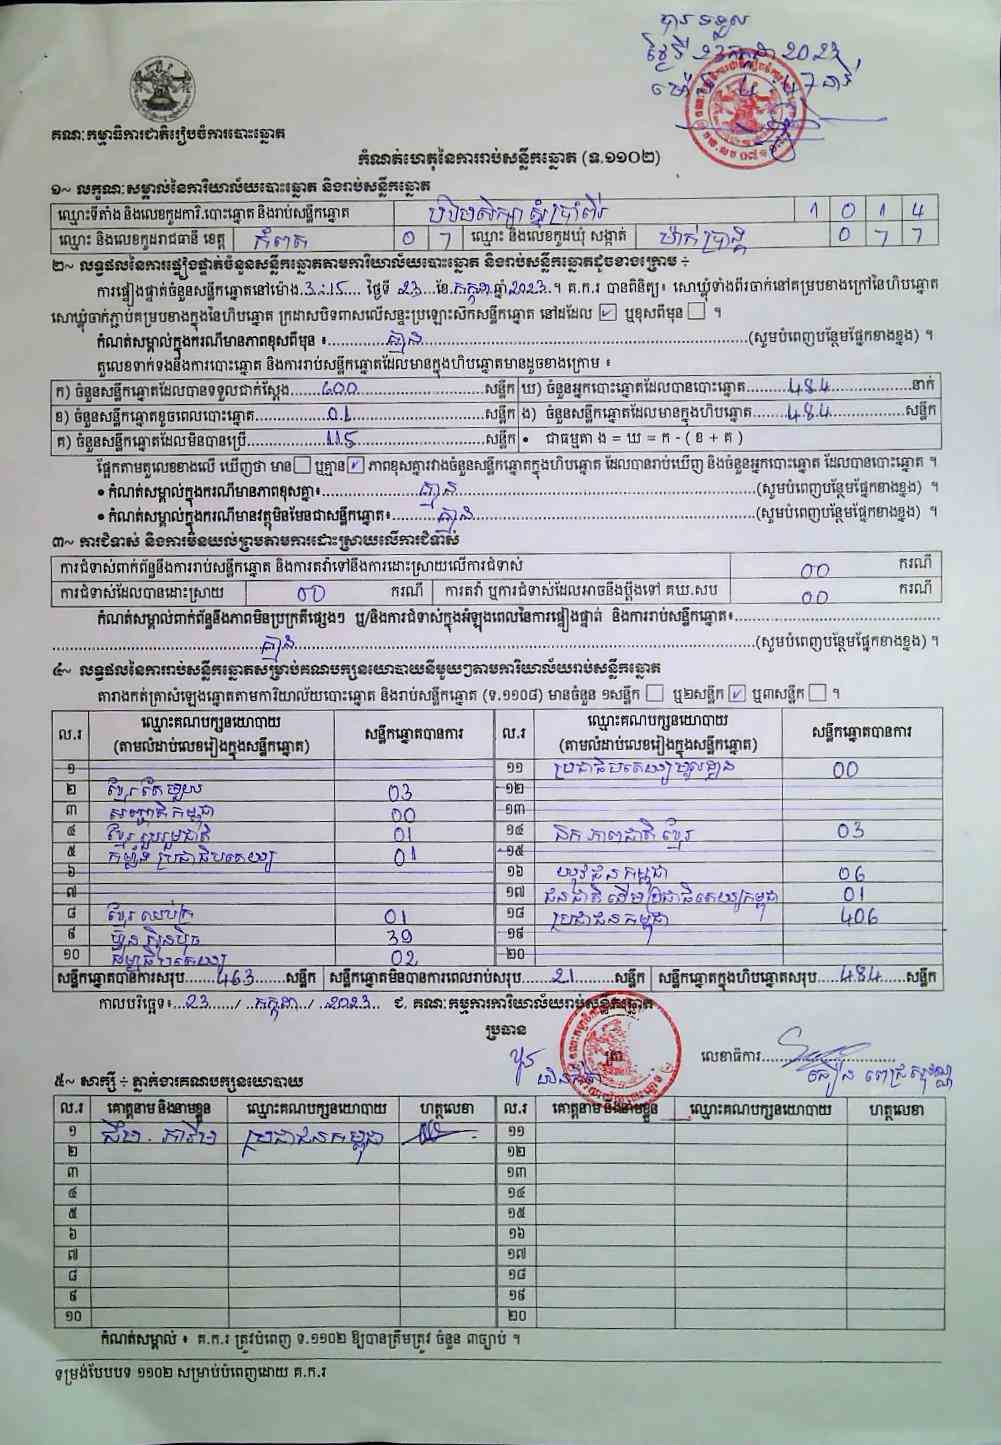 បានទទួល
ថ្ងៃទី 23 កក្កដា 2023
ម៉ោង 4 : 47 នាទី
គណៈកម្មាធិការជាតិរៀបចំការបោះឆ្នោត
កំណត់ហេតុនៃការរាប់សន្លឹកឆ្នោត (ទ.១១០២)
១~ លក្ខណៈសម្គាល់នៃការិយាល័យបោះឆ្នោត និងរាប់សន្លឹកឆ្នោត
ឈ្មោះទីតាំង និងលេខកូដការិ.បោះឆ្នោត និងរាប់សន្លឹកឆ្នោត 1 0 1 4
ឈ្មោះ និងលេខកូដរាជធានី ខេត្ត កំពត 0 7 ឈ្មោះ និងលេខកូដឃុំ សង្កាត់ ម៉ាក់ប្រាង្គ 0 7 7
២~ លទ្ធផលនៃការផ្ទៀងផ្ទាត់ចំនួនសន្លឹកឆ្នោតតាមការិយាល័យបោះឆ្នោត និងរាប់សន្លឹកឆ្នោតដូចខាងក្រោម ÷
ការផ្ទៀងផ្ទាត់ចំនួនសន្លឹកឆ្នោតនៅម៉ោង.3:15.... ថ្ងៃទី 23 ខែ កក្កដា ឆ្នាំ 2023 ។ គ.ក.រ បានពិនិត្យ៖ សោឃ្លុំទាំងពីរចាក់នៅគម្របខាងក្រៅនៃហិបឆ្នោត
សោឃ្លុំចាក់ភ្ជាប់គម្របខាងក្នុងនៃហិបឆ្នោត ក្រដាសបិទពាសលើសន្ទះប្រឡោះសឹកសន្លឹកឆ្នោត នៅដដែល ☑ ឬខុសពីមុន ☐ ។
កំណត់សម្គាល់ក្នុងករណីមានភាពខុសពីមុន ៖ គ្មាន (សូមបំពេញបន្ថែមផ្នែកខាងខ្នង) ។
តួលេខទាក់ទងនឹងការបោះឆ្នោត និងការរាប់សន្លឹកឆ្នោតដែលមានក្នុងហិបឆ្នោតមានដូចខាងក្រោម ៖
ក) ចំនួនសន្លឹកឆ្នោតដែលបានទទួលជាក់ស្តែង 600 សន្លឹក ឃ) ចំនួនអ្នកបោះឆ្នោតដែលបានបោះឆ្នោត 484 នាក់
ខ) ចំនួនសន្លឹកឆ្នោតខូចពេលបោះឆ្នោត 01 សន្លឹក ង) ចំនួនសន្លឹកឆ្នោតដែលមានក្នុងហិបឆ្នោត 484 សន្លឹក
គ) ចំនួនសន្លឹកឆ្នោតដែលមិនបានប្រើ 115 សន្លឹក • ជាធម្មតា ង = ឃ = ក - ( ខ + គ )
ផ្អែកតាមតួលេខខាងលើ ឃើញថា មាន ☐ ឬគ្មាន ☑ ភាពខុសគ្នារវាងចំនួនសន្លឹកឆ្នោតក្នុងហិបឆ្នោត ដែលបានរាប់ឃើញ និងចំនួនអ្នកបោះឆ្នោត ដែលបានបោះឆ្នោត ។
• កំណត់សម្គាល់ក្នុងករណីមានភាពខុសគ្នា៖ គ្មាន (សូមបំពេញបន្ថែមផ្នែកខាងខ្នង) ។
• កំណត់សម្គាល់ក្នុងករណីមានវត្ថុមិនមែនជាសន្លឹកឆ្នោត៖ គ្មាន (សូមបំពេញបន្ថែមផ្នែកខាងខ្នង) ។
៣~ ការជំទាស់ និងការមិនយល់ព្រមតាមការដោះស្រាយលើការជំទាស់
ការជំទាស់ពាក់ព័ន្ធនឹងការរាប់សន្លឹកឆ្នោត និងការតវ៉ាទៅនឹងការដោះស្រាយលើការជំទាស់ 00 ករណី
ការជំទាស់ដែលបានដោះស្រាយ 00 ករណី ការតវ៉ា ឬការជំទាស់ដែលអាចនឹងប្តឹងទៅ គឃ.សប 00 ករណី
កំណត់សម្គាល់ពាក់ព័ន្ធនឹងភាពមិនប្រក្រតីផ្សេងៗ ឬ/និងការជំទាស់ក្នុងអំឡុងពេលនៃការផ្ទៀងផ្ទាត់ និងការរាប់សន្លឹកឆ្នោត៖
គ្មាន (សូមបំពេញបន្ថែមផ្នែកខាងខ្នង) ។
៤~ លទ្ធផលនៃការរាប់សន្លឹកឆ្នោតសម្រាប់គណបក្សនយោបាយនីមួយៗតាមការិយាល័យរាប់សន្លឹកឆ្នោត
តារាងកត់ត្រាសំឡេងឆ្នោតតាមការិយាល័យបោះឆ្នោត និងរាប់សន្លឹកឆ្នោត (ទ.១១០៨) មានចំនួន ១សន្លឹក ☐ ឬ២សន្លឹក ☑ ឬ៣សន្លឹក ☐ ។
ល.រ ឈ្មោះគណបក្សនយោបាយ (តាមលំដាប់លេខរៀងក្នុងសន្លឹកឆ្នោត) សន្លឹកឆ្នោតបានការ ល.រ ឈ្មោះគណបក្សនយោបាយ (តាមលំដាប់លេខរៀងក្នុងសន្លឹកឆ្នោត) សន្លឹកឆ្នោតបានការ
១ ១១ ប្រជាធិបតេយ្យមូលដ្ឋាន 00
២ ខ្មែរតែមួយ 03 ១២
៣ សញ្ជាតិកម្ពុជា 00 ១៣
៤ ខ្មែររួបរួមជាតិ 01 ១៤ ឯកភាពជាតិខ្មែរ 03
៥ កម្លាំងប្រជាធិបតេយ្យ 01 ១៥
៦ ១៦ យុវជនកម្ពុជា 06
៧ ១៧ ជនជាតិដើមប្រជាធិបតេយ្យកម្ពុជា 01
៨ ខ្មែរឈប់ក្រ 01 ១៨ ប្រជាជនកម្ពុជា 406
៩ ហ៊្វុនស៊ិនប៉ិច 39 ១៩
១០ ធម្មាធិបតេយ្យ 02 ២០
សន្លឹកឆ្នោតបានការសរុប 463 សន្លឹក សន្លឹកឆ្នោតមិនបានការពេលរាប់សរុប 21 សន្លឹក សន្លឹកឆ្នោតក្នុងហិបឆ្នោតសរុប 484 សន្លឹក
កាលបរិច្ឆេទ៖ 23 / កក្កដា / 2023 ជ. គណៈកម្មការការិយាល័យរាប់សន្លឹកឆ្នោត
ប្រធាន
ត្រា លេខាធិការ
៥~ សាក្សី ÷ ភ្នាក់ងារគណបក្សនយោបាយ
ល.រ គោត្តនាម និងនាមខ្លួន ឈ្មោះគណបក្សនយោបាយ ហត្ថលេខា ល.រ គោត្តនាម និងនាមខ្លួន ឈ្មោះគណបក្សនយោបាយ ហត្ថលេខា
១ ប្រជាជនកម្ពុជា ១១
២ ១២
៣ ១៣
៤ ១៤
៥ ១៥
៦ ១៦
៧ ១៧
៨ ១៨
៩ ១៩
១០ ២០
កំណត់សម្គាល់ ៖ គ.ក.រ ត្រូវបំពេញ ទ.១១០២ ឱ្យបានត្រឹមត្រូវ ចំនួន ៣ច្បាប់ ។
ទម្រង់បែបបទ ១១០២ សម្រាប់បំពេញដោយ គ.ក.រ